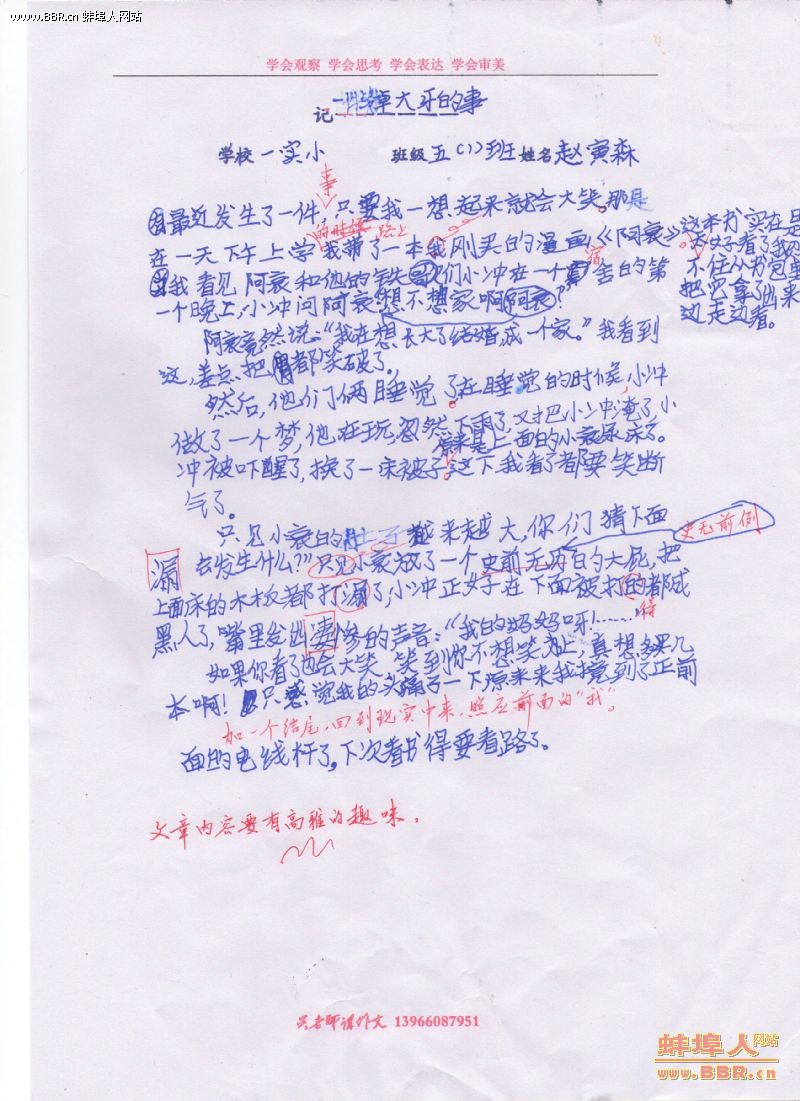 www.BBR.cn 蚌埠人网站
学会观察 学会思考 学会表达 学会审美
记一件笑掉大牙的事
学校 一实小 班级 五(1)班 姓名 赵寅森
事
最近发生了一件,只要我一想起来就会大笑。那是
的时候 路上
在一天下午上学我带了一本我刚买的漫画《阿衰》这本书实在是
太好看了我忍
不住从书包里
把它拿了出来
边走边看。
宿
我看见阿衰和他的铁哥们小冲在一个宿舍的第
一个晚上,小冲问阿衰:想不想家啊阿衰?”
阿衰竟然说:“我在想长大了结婚,成一个家。”我看到
这,差点把胃都笑破了。
然后,他们俩睡觉了。在睡觉的时候,小冲
做了一个梦,他在玩,忽然下雨了,又把小冲淹了,小
原来是上面的小衰尿床了。
冲被吓醒了,换了一床被子,这下我看了都要笑断
气了。
只见小衰的肚子越来越大,你们猜下面
史无前例
漏
会发生什么?”只见小衰放了一个史前无历的大屁,把
上面床的木板都打漏了,小冲正好在下面被打的都成
得
黑人了,嘴里发出凄惨的声音:“我的妈妈呀!……”
如果你看了也会大笑,笑到你不想笑为止,真想多买几
本啊!只感觉我的头痛了一下原来来我撞到了正前
加一个结尾,回到现实中来,照应前面的“我”。
面的电线杆了,下次看书得要看路了。
文章内容要有高雅的趣味。
吴老师课外文 13966087951
蚌埠人网站
www.BBR.cn